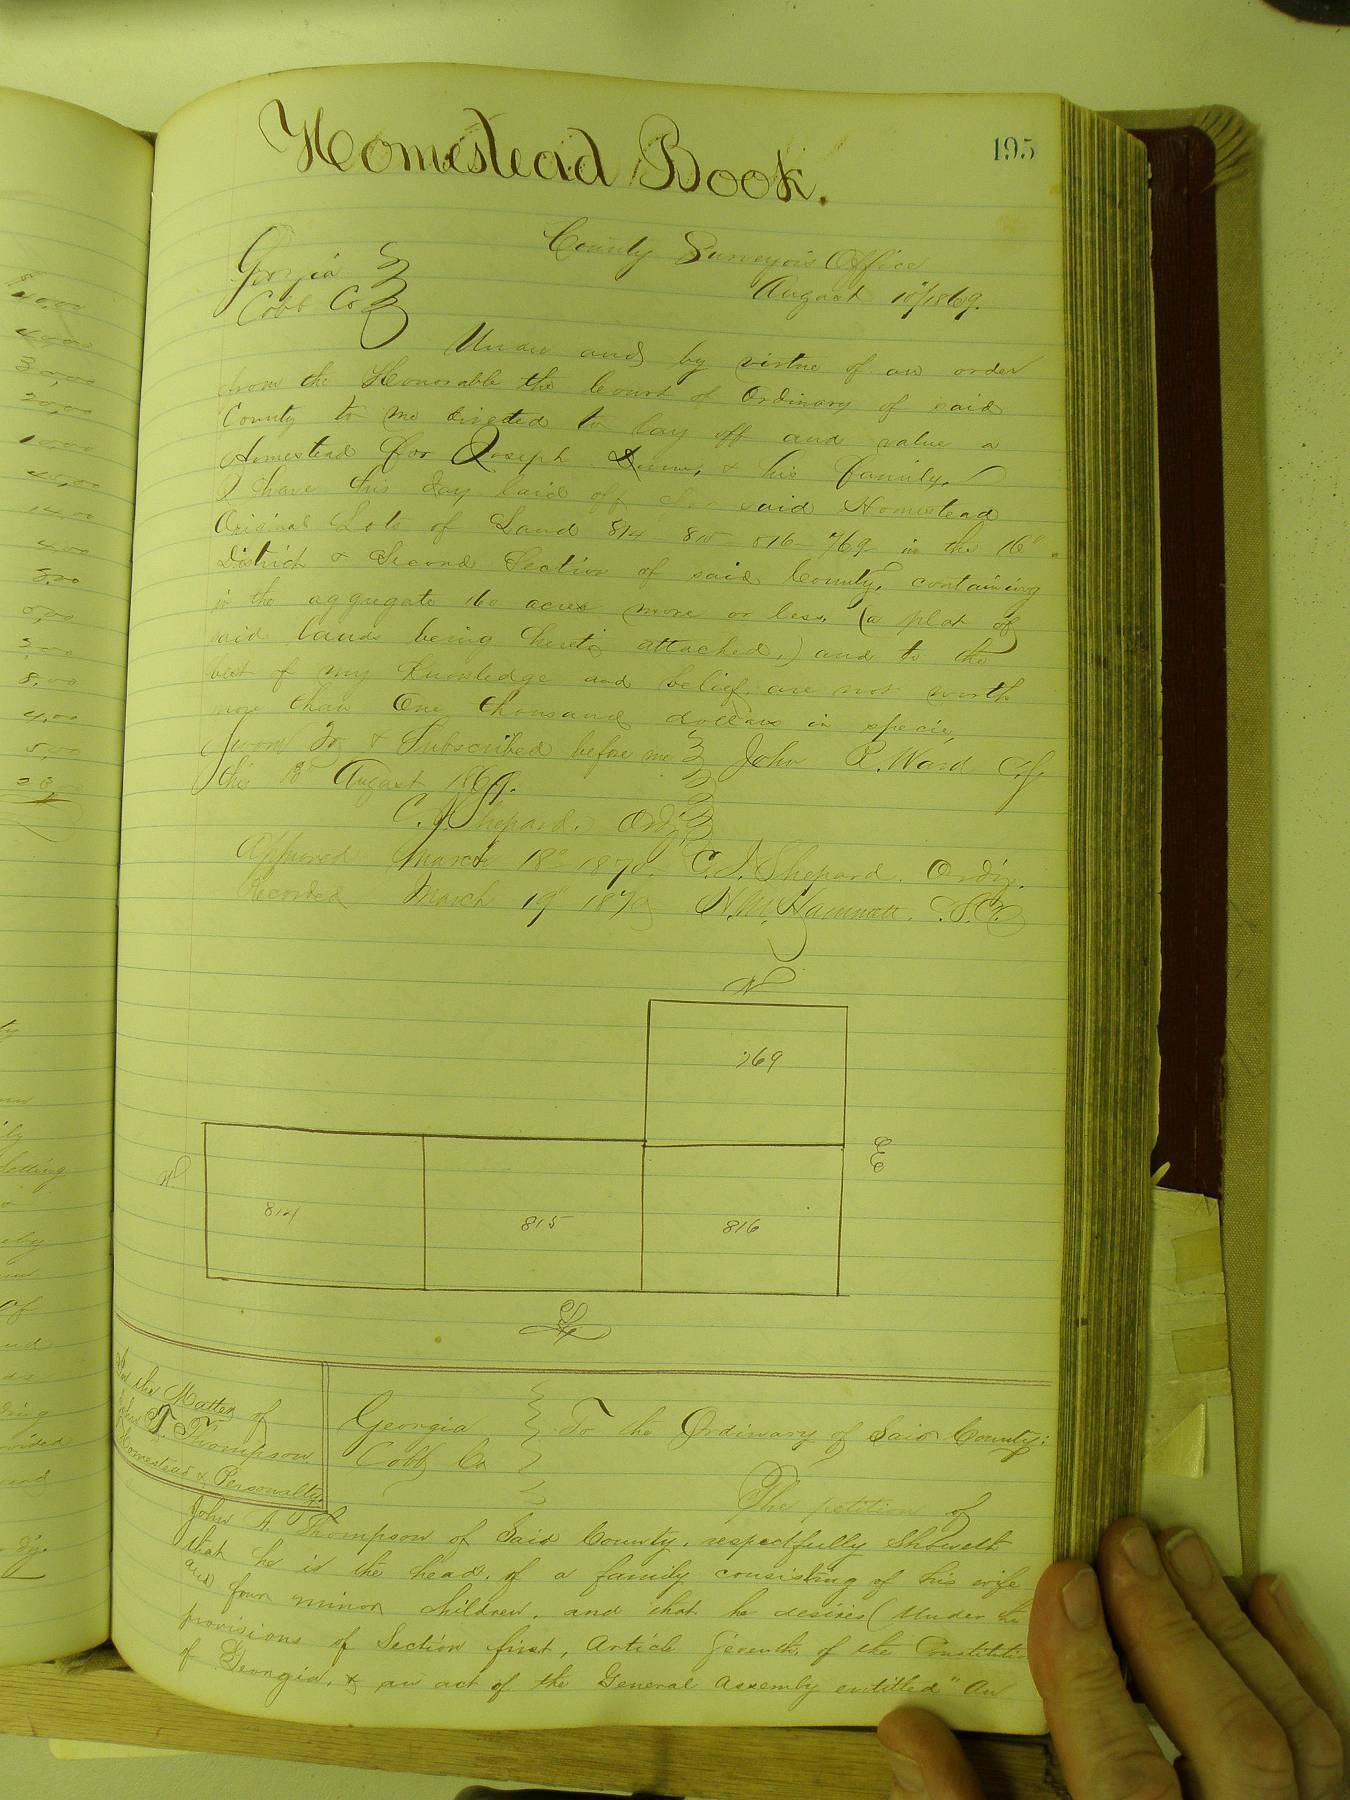 Homestead Book.
195
County Surveyors Office
Georgia
Cobb Co
August 10th/1869.
Under and by virtue of an order
from the Honorable the Court of Ordinary of said
County to me directed to lay off and value a
Homestead for Joseph & his Family.
I have this day laid off for said Homestead
Original Lots of Land 814 - 815 - 816 - 769 - in the 16"
District & Second Section of said County, containing
in the aggregate 160 acres more or less, (a plat of
said lands being hereto attached,) and to the
best of my Knowledge and belief, are not worth
more than One thousand dollars in specie,
Sworn To & Subscribed before me John R. Ward
this August 1869.
C. J. Shepard. Ordy
Approved March 18th 1870. C. J. Shepard. Ordy.
Recorded March 19" 1870 N. M. Hammett. C.S.C.
N
769
W
E
814
815
816
S
In the Matter of
John T. Thompson
Homestead & Personalty
Georgia
Cobb Co
To the Ordinary of Said County:
The petition of
John A. Thompson of Said County, respectfully Showeth
that he is the head, of a family consisting of his wife
and four minor children, and that he desires (Under the
provisions of Section first, Article Seventh, of the Constitution
of Georgia, & an act of the General Assembly entitled "An
40,00
30,00
20,00
10,00
45,00
14,00
4,00
8,00
4,00
5,00